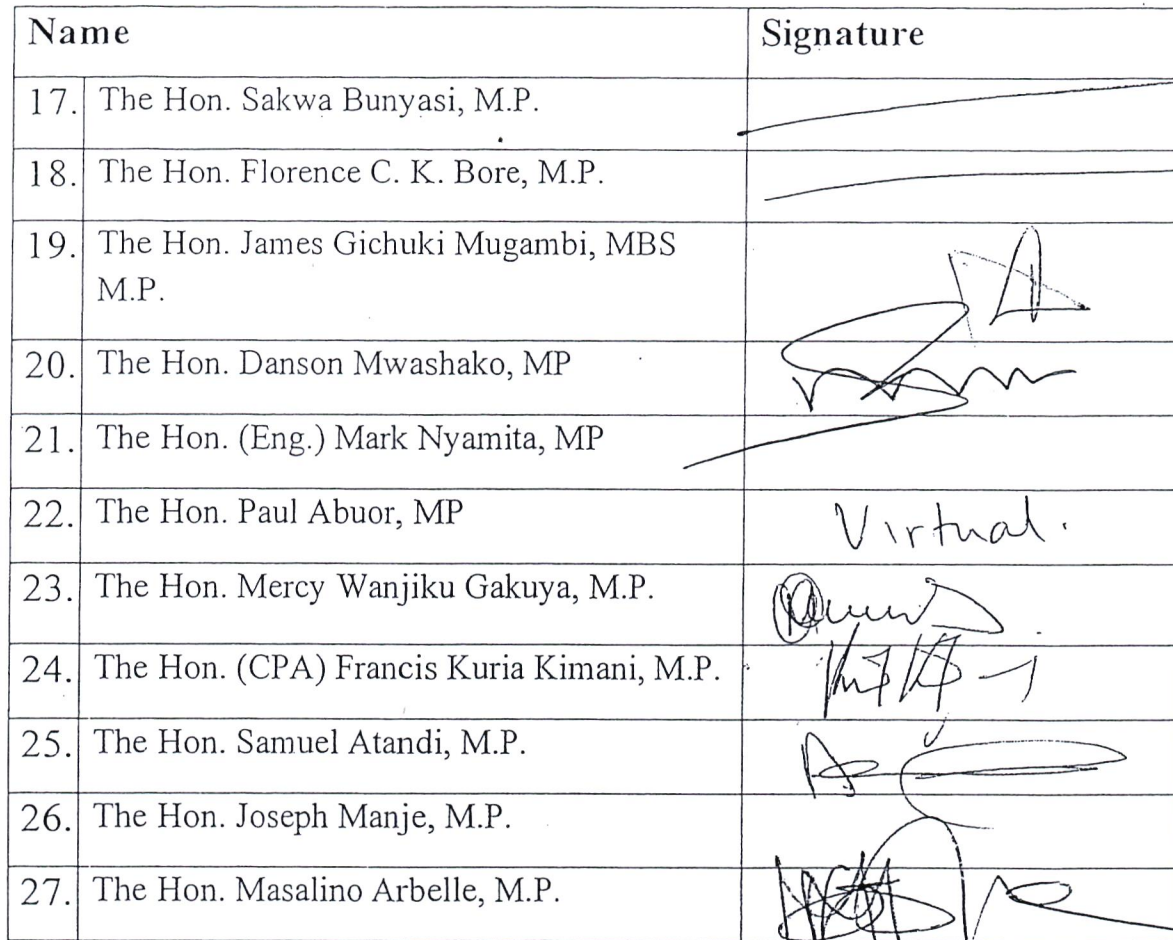 Name Signature
17. The Hon. Sakwa Bunyasi, M.P.
18. The Hon. Florence C. K. Bore, M.P.
19. The Hon. James Gichuki Mugambi, MBS
M.P.
20. The Hon. Danson Mwashako, MP
21. The Hon. (Eng.) Mark Nyamita, MP
22. The Hon. Paul Abuor, MP Virtual.
23. The Hon. Mercy Wanjiku Gakuya, M.P.
24. The Hon. (CPA) Francis Kuria Kimani, M.P.
25. The Hon. Samuel Atandi, M.P.
26. The Hon. Joseph Manje, M.P.
27. The Hon. Masalino Arbelle, M.P.